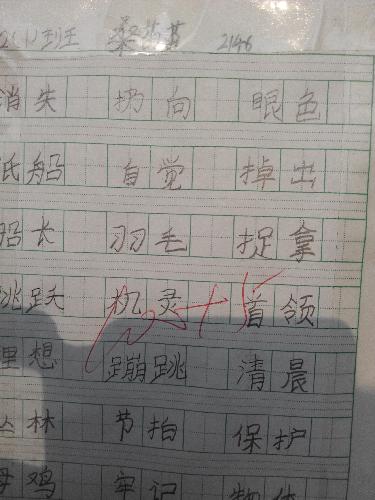 2(1)班 2146
消失 扔向 眼色
纸船 自觉 掉出
船长 羽毛 捉拿
跳跃 机灵 首领
100+5
理想 蹦跳 清晨
丛林 节拍 保护
母鸡 牢记 物体